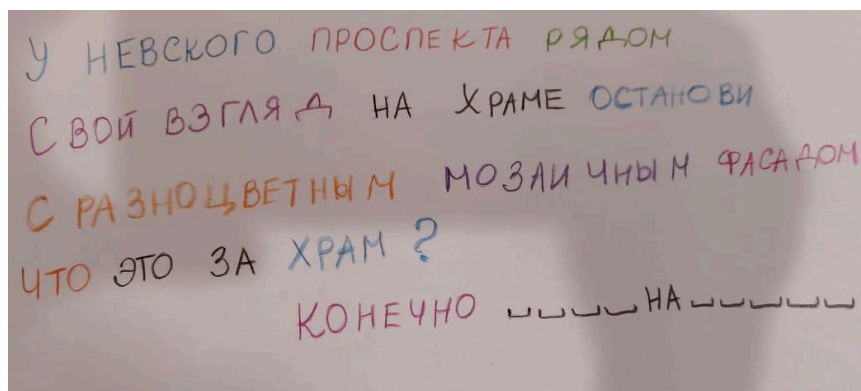 У НЕВСКОГО ПРОСПЕКТА РЯДОМ
СВОЙ ВЗГЛЯД НА ХРАМЕ ОСТАНОВИ
С РАЗНОЦВЕТНЫМ МОЗАИЧНЫМ ФАСАДОМ
ЧТО ЭТО ЗА ХРАМ?
КОНЕЧНО _ _ _ _ НА _ _ _ _ _